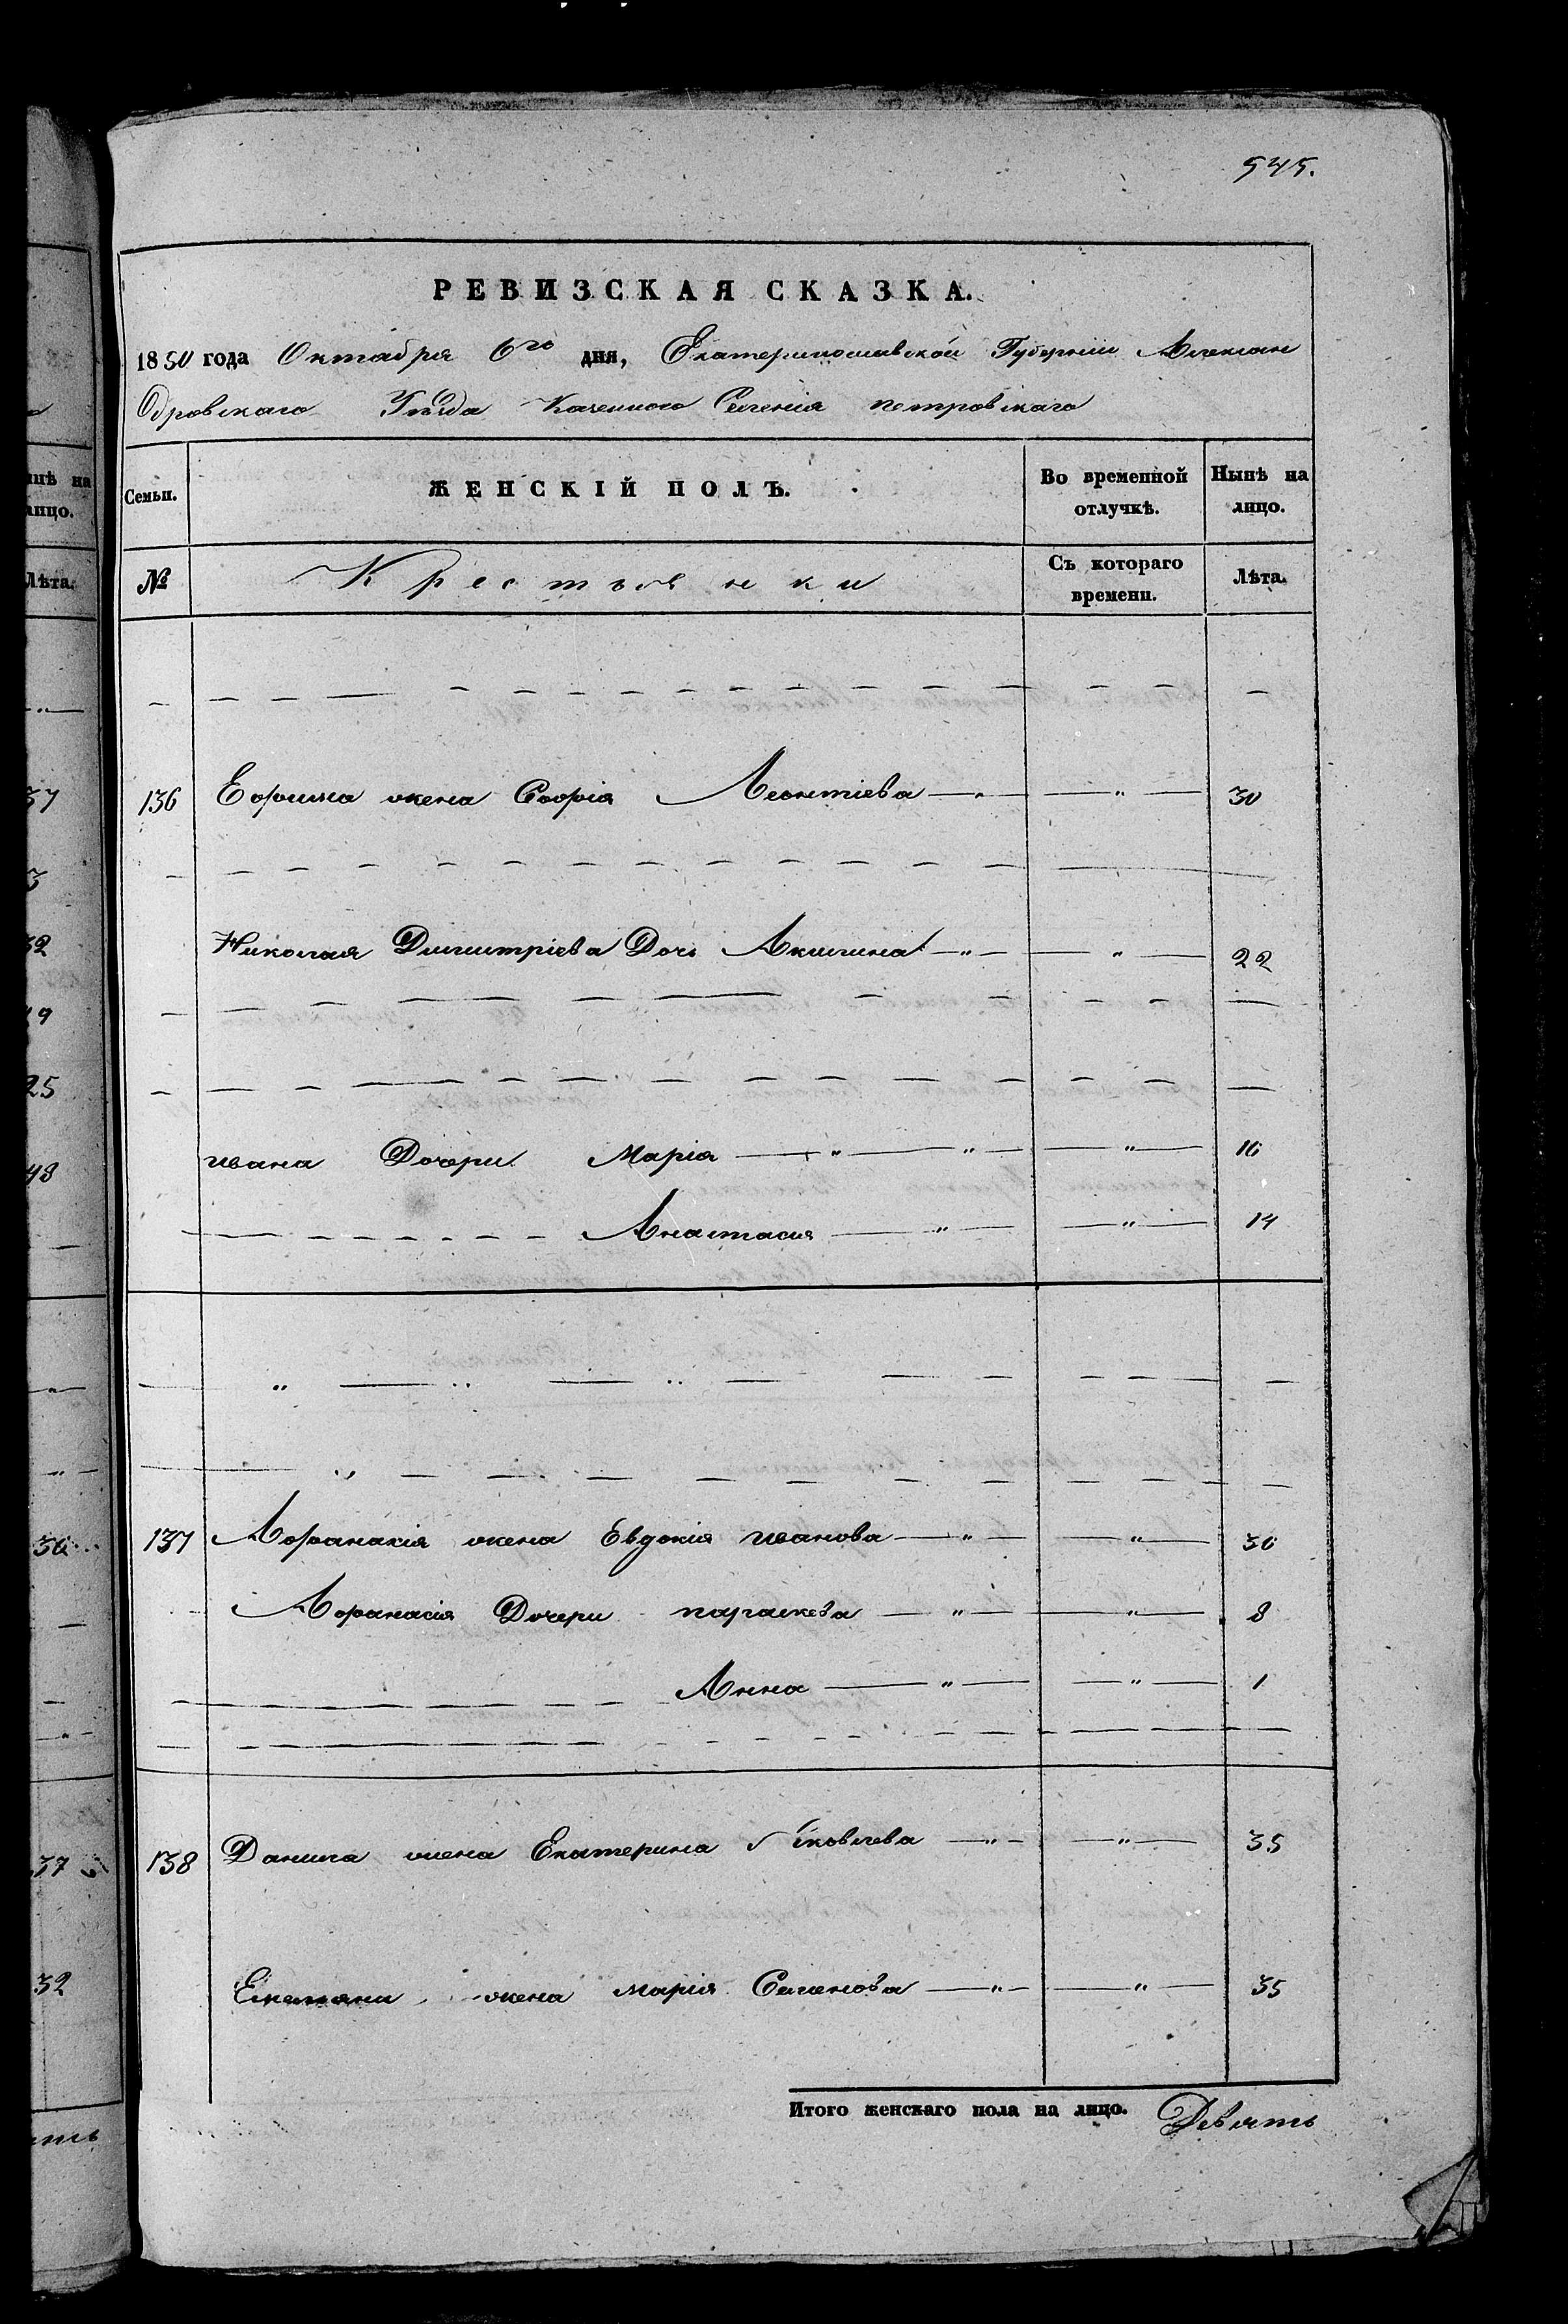 545.
РЕВИЗСКАЯ СКАЗКА.
1850 года Октября 6го дня, Екатеринославской Губерніи Алексан
Дровскаго Уѣзда Казенного Селенія петровскаго
Семьи. ЖЕНСКІЙ ПОЛЪ. Во временной отлучкѣ. Нынѣ на лицо.
№ Крестьянки Съ котораго времени. Лѣта.
136 Ефима жена Софія Леонтіева — " — — " — 30
Николая Димитріева Дочь Акилина — " — — " — 22
ивана Дочери Марія — " — " — — " — 16
Анастасия — " — — " — 14
137 Афанасія жена Евдокия иванова — " — — " — 36
Афанасія Дочери параскева — " — — " — 8
Анна — " — — " — 1
138 Данила жена Екатерина Яковлева — " — — " — 35
жена марія Семенова — " — — " — 35
Итого женскаго пола на лицо. Девять
нынѣ на
лицо.
Лѣта.
37
3
32
19
25
48
36
37
32